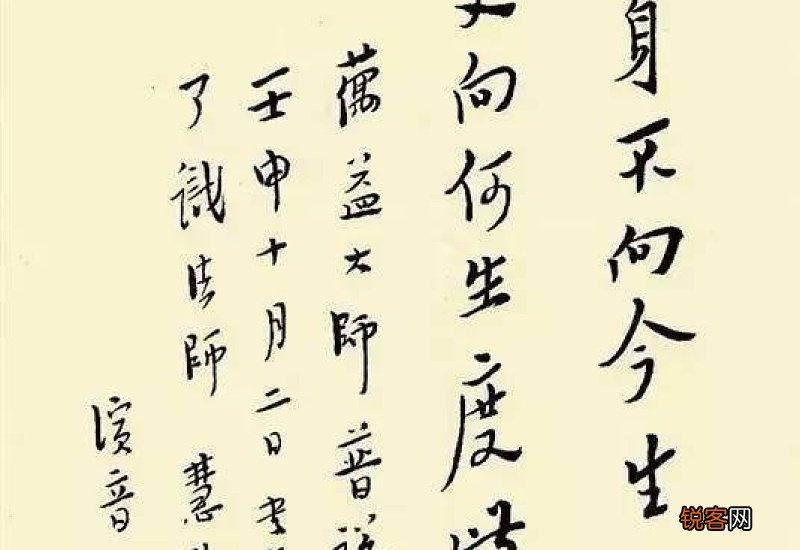 身不向今生
向何生度
蕅益大師普說
壬申十月二日書
了識法師 慧
演音
锐客网